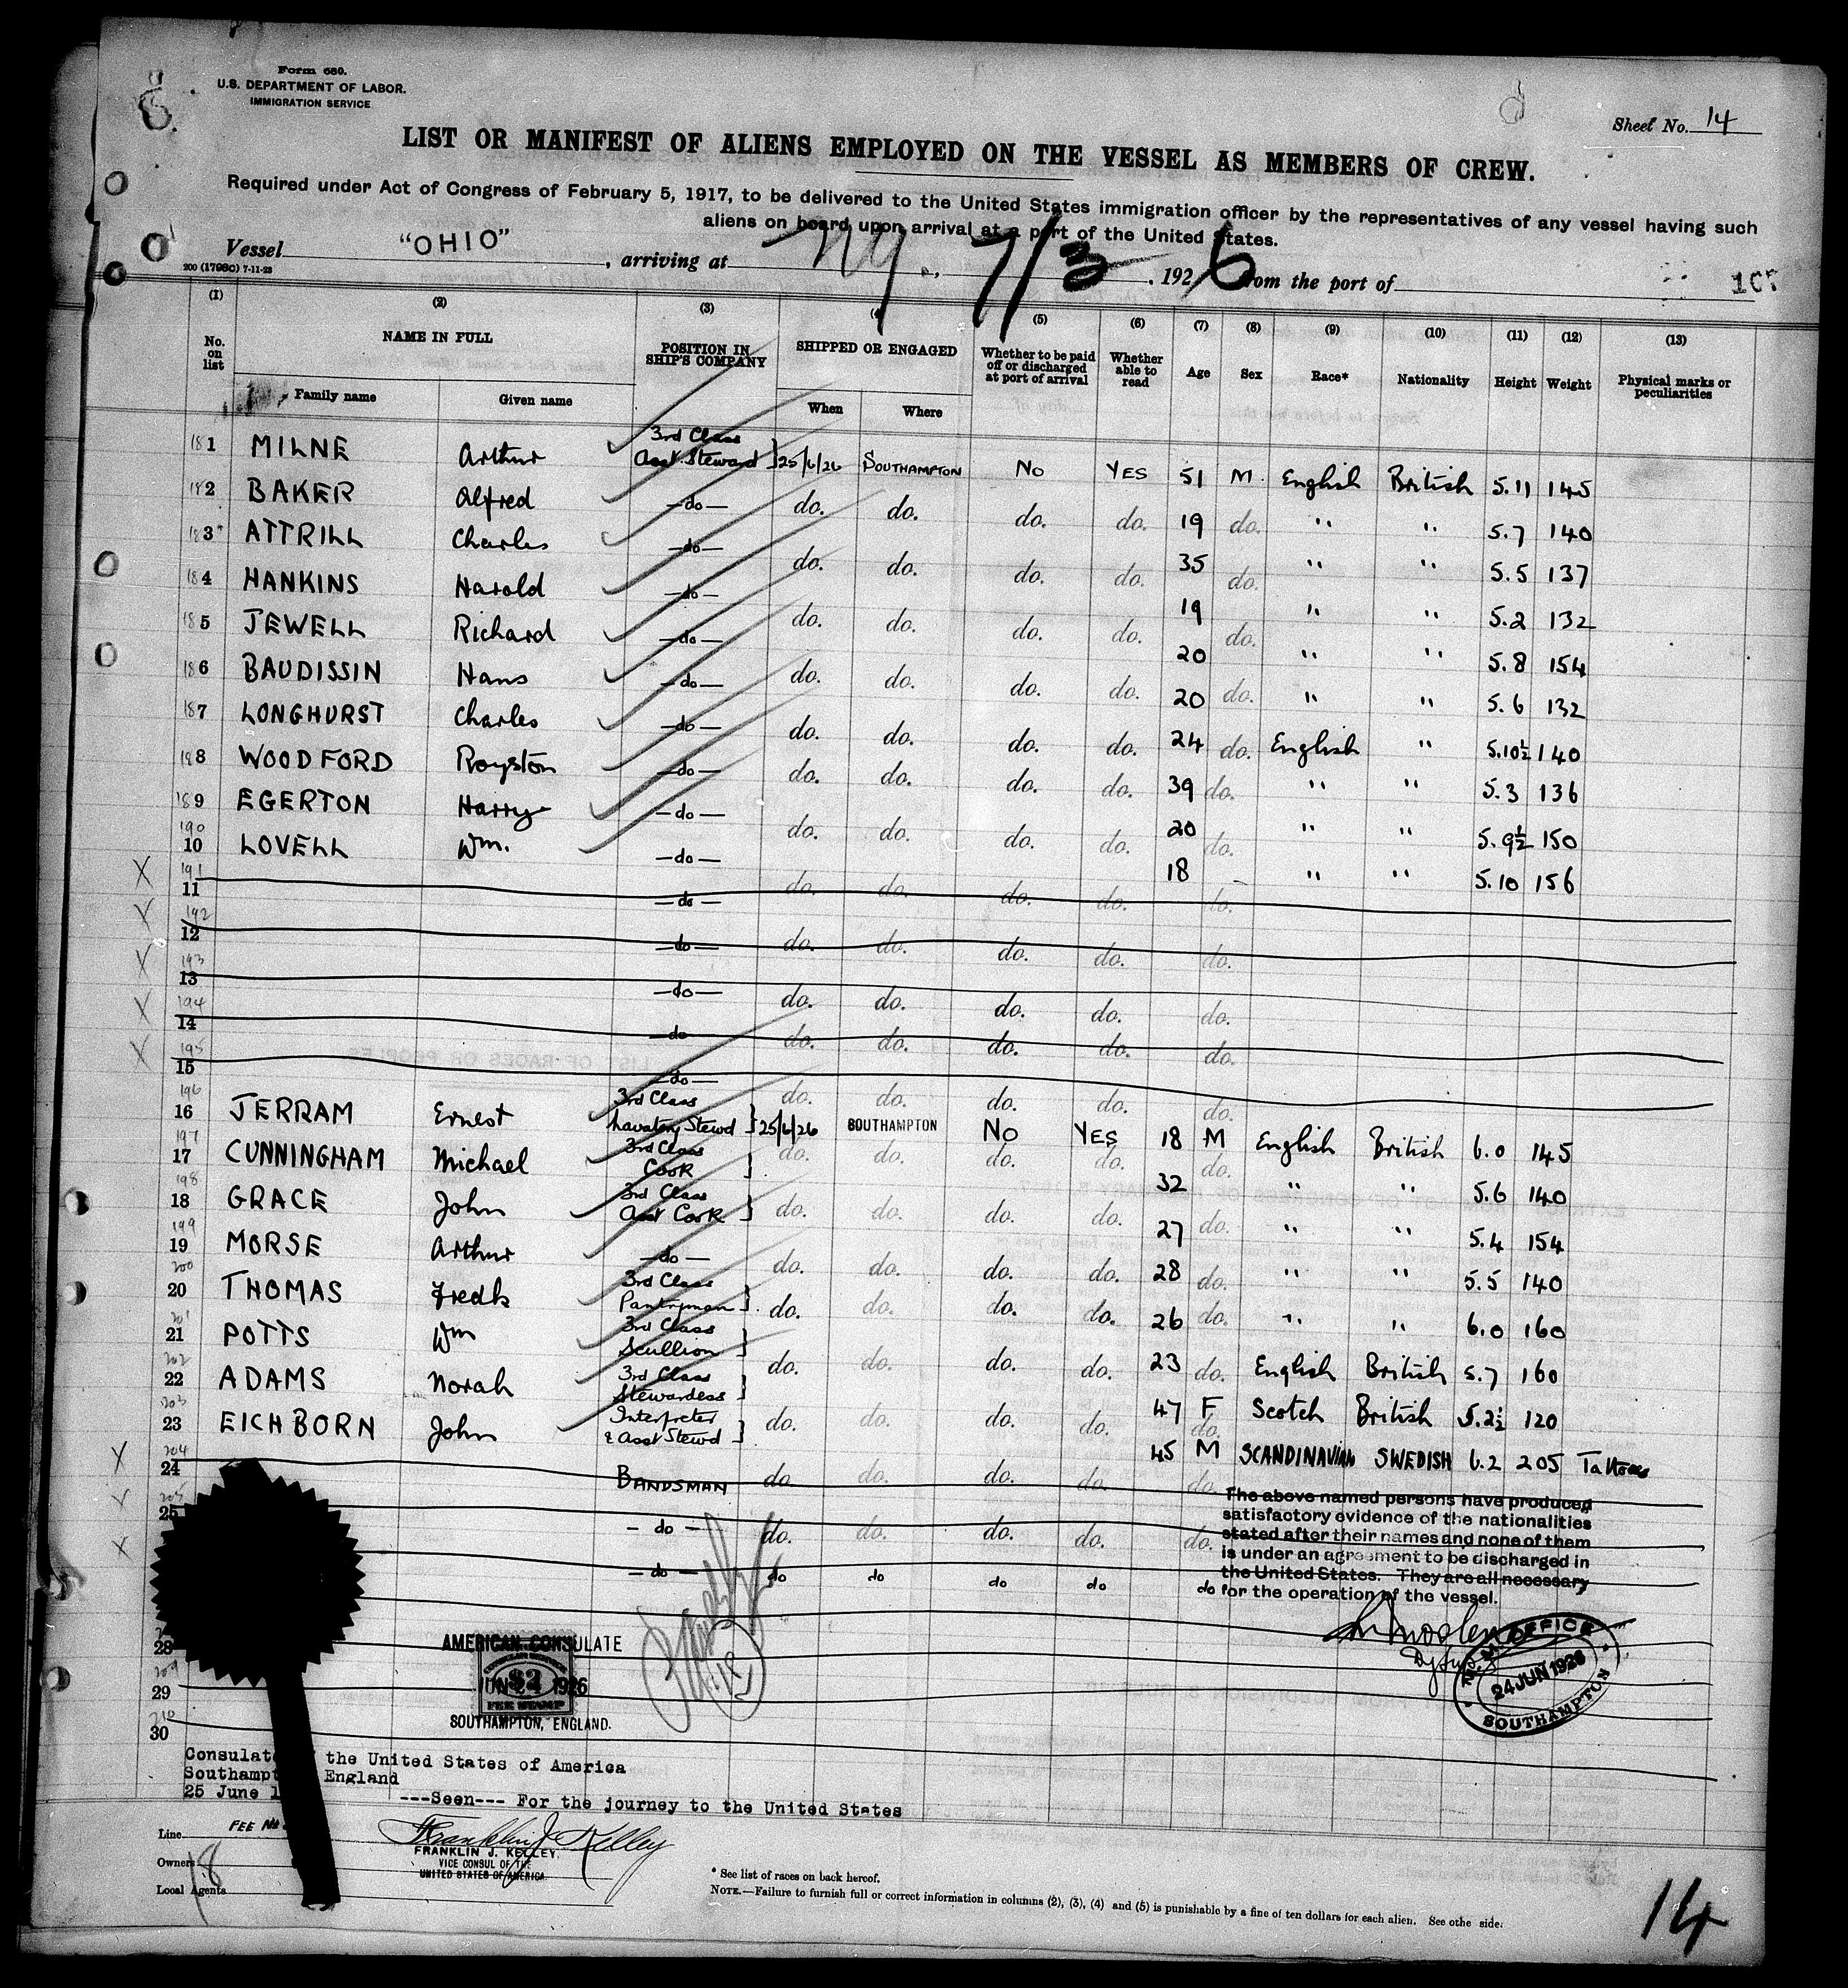 Form 680.
U.S. DEPARTMENT OF LABOR.
IMMIGRATION SERVICE
Sheet No. 14
LIST OR MANIFEST OF ALIENS EMPLOYED ON THE VESSEL AS MEMBERS OF CREW.
Required under Act of Congress of February 5, 1917, to be delivered to the United States immigration officer by the representatives of any vessel having such
aliens on board upon arrival at a port of the United States.
Vessel "OHIO", arriving at Ny., 7/3, 1926 from the port of
200 (1798C) 7-11-23
(1) (2) (3) (5) (6) (7) (8) (9) (10) (11) (12) (13)
No. on list NAME IN FULL POSITION IN SHIP'S COMPANY SHIPPED OR ENGAGED Whether to be paid off or discharged at port of arrival Whether able to read Age Sex Race* Nationality Height Weight Physical marks or peculiarities
Family name Given name When Where
181 MILNE Arthur 3rd Class Asst. Steward } 25/6/26 SOUTHAMPTON NO YES 51 M. English British 5.11 145
182 BAKER Alfred —do— do. do. do. do. 19 do. " " 5.7 140
183 ATTRILL Charles —do— do. do. do. do. 35 do. " " 5.5 137
184 HANKINS Harold —do— do. do. do. do. 19 do. " " 5.2 132
185 JEWELL Richard —do— do. do. do. do. 20 do. " " 5.8 154
186 BAUDISSIN Hans —do— do. do. do. do. 20 do. " " 5.6 132
187 LONGHURST Charles —do— do. do. do. do. 24 do. English " 5.10½ 140
188 WOODFORD Royston —do— do. do. do. do. 39 do. " " 5.3 136
189 EGERTON Harry —do— do. do. do. do. 20 do. " " 5.9½ 150
190 10 LOVELL Wm. —do— do. do. do. do. 18 — " " 5.10 156
191 11 —do— do. do. do. do. do.
192 12 —do— do. do. do. do. do.
193 13 —do— do. do. do. do. do.
194 14 —do— do. do. do. do. do.
195 15 —do— do. do. do. do. do.
196 16 JERRAM Ernest 3rd Class Lavatory Stewd } 25/6/26 SOUTHAMPTON NO YES 18 M English British 6.0 145
197 17 CUNNINGHAM Michael 3rd Class Cook } do. do. do. do. 32 do. " " 5.6 140
198 18 GRACE John 3rd Class Asst Cook } do. do. do. do. 27 do. " " 5.4 154
199 19 MORSE Arthur —do— do. do. do. do. 28 do. " " 5.5 140
200 20 THOMAS Fredk 3rd Class Pantryman } do. do. do. do. 26 do. " " 6.0 160
201 21 POTTS Wm 3rd Class Scullion } do. do. do. do. 23 do. English British 5.7 160
202 22 ADAMS Norah 3rd Class Stewardess } do. do. do. do. 47 F Scotch British 5.2½ 120
203 23 EICHBORN John Interpreter & Asst Stewd } do. do. do. do. 45 M SCANDINAVIAN SWEDISH 6.2 205 Tattoos
204 24 BANDSMAN do. do. do. do. do.
205 25 — do — do. do. do. do. do.
— do — do do do do do
28
209 29
210 30
The above named persons have produced
satisfactory evidence of the nationalities
stated after their names and none of them
is under an agreement to be discharged in
the United States. They are all necessary
for the operation of the vessel.
OFFICE
24 JUN 1926
SOUTHAMPTON
AMERICAN CONSULATE
$2
FEE STAMP
JUN 24 1926
SOUTHAMPTON, ENGLAND.
Consulate the United States of America
Southampt England
25 June 1
---Seen--- For the journey to the United States
Line FEE No
Owners 18
Local Agents
Franklin J. Kelley
FRANKLIN J. KELLEY.
VICE CONSUL OF THE
UNITED STATES OF AMERICA.
* See list of races on back hereof.
NOTE.—Failure to furnish full or correct information in columns (2), (3), (4) and (5) is punishable by a fine of ten dollars for each alien. See othe side.
14